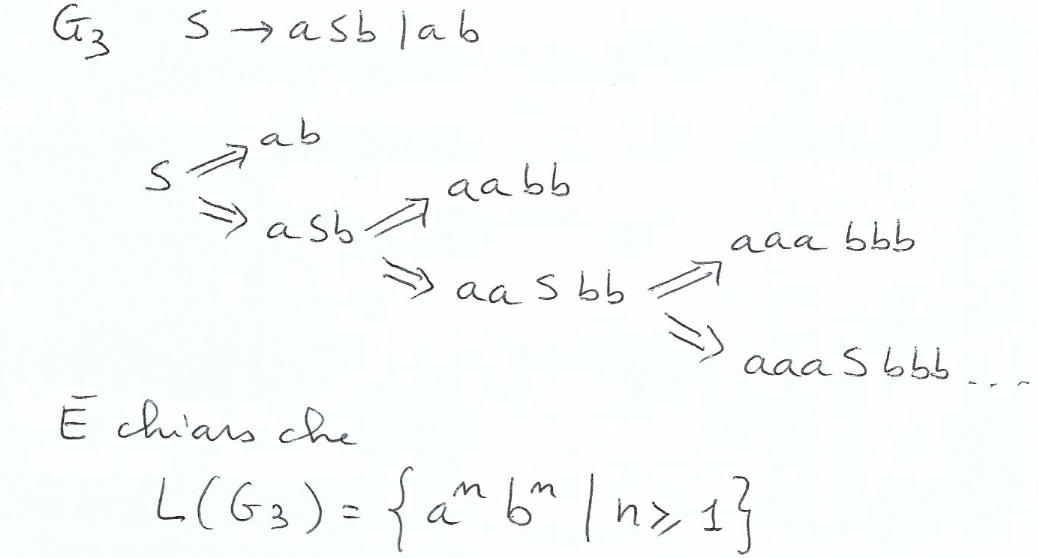 G₃ S → aSb | ab
S ⇒ ab
⇒ aSb ⇒ aabb
⇒ aaSbb ⇒ aaabbb
⇒ aaaSbbb ...
È chiaro che
L(G₃) = {aⁿbⁿ | n ≥ 1}